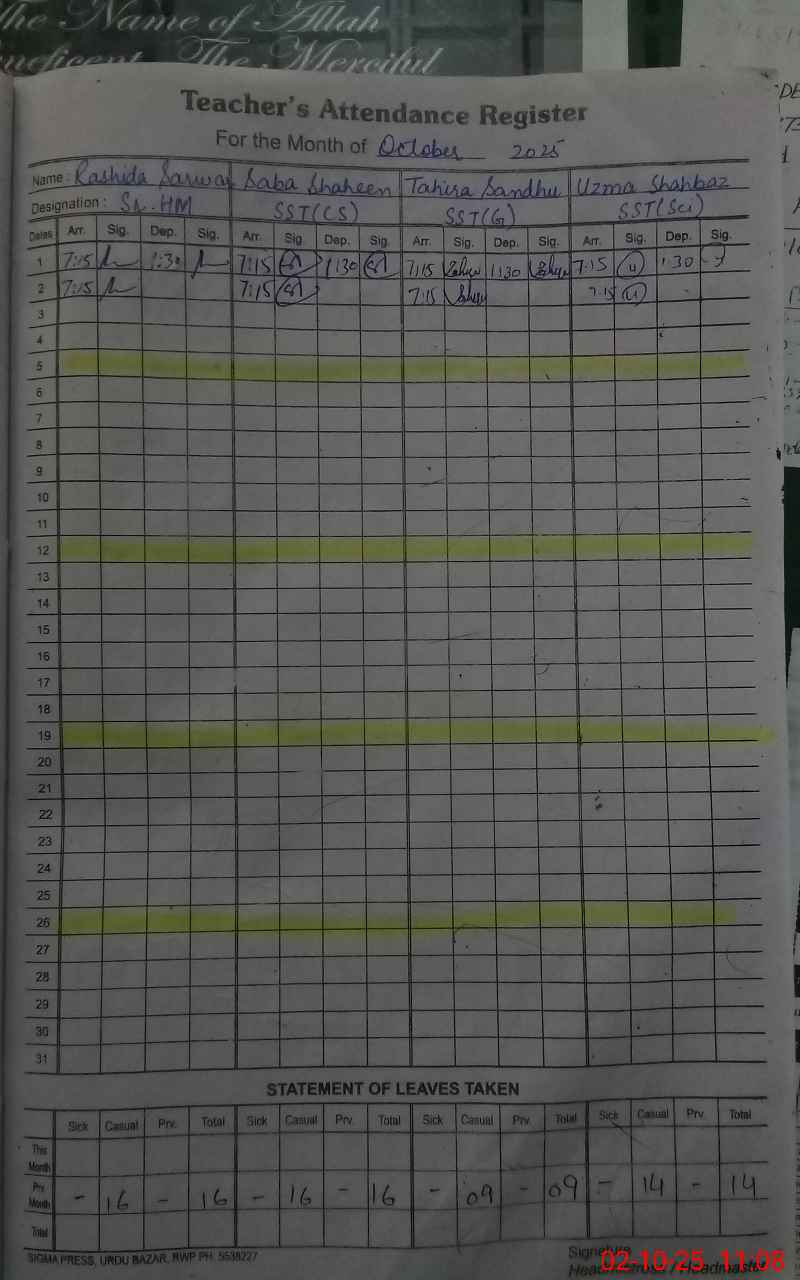 The Name of Allah
neficent The Merciful
Teacher's Attendance Register
For the Month of October 2025
Name : Rashida Sarwar Saba Shaheen Tahira Sandhu Uzma Shahbaz
Designation : Sr. HM SST(CS) SST(G) SST(Sci)
Dates Arr. Sig. Dep. Sig. Arr. Sig. Dep. Sig. Arr. Sig. Dep. Sig. Arr. Sig. Dep. Sig.
1 7:15 1:30 7:15 1:30 7:15 1:30 7:15 1:30
2 7:15 7:15 7:15 7:15
3
4
5
6
7
8
9
10
11
12
13
14
15
16
17
18
19
20
21
22
23
24
25
26
27
28
29
30
31
STATEMENT OF LEAVES TAKEN
Sick Casual Prv. Total Sick Casual Prv. Total Sick Casual Prv. Total Sick Casual Prv. Total
This Month
Prv. Month - 16 - 16 - 16 - 16 - 09 - 09 - 14 - 14
Total
SIGMA PRESS, URDU BAZAR, RWP PH: 5538227
Signature
02-10-25 11:08